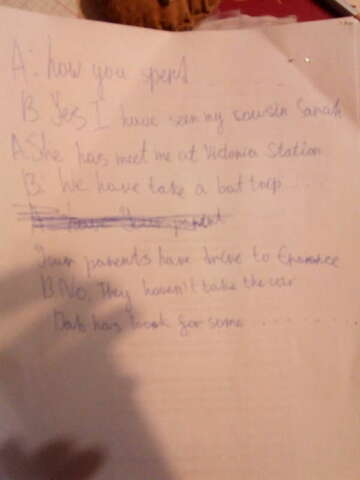 A: how you spend
B Yes I have seen my cousin Sarah
A: She has meet me at Victoria Station
B: We have take a boat trip....
have your parent
Your parents have drive to
B: No, They haven't take the car
Dab has look for some .........